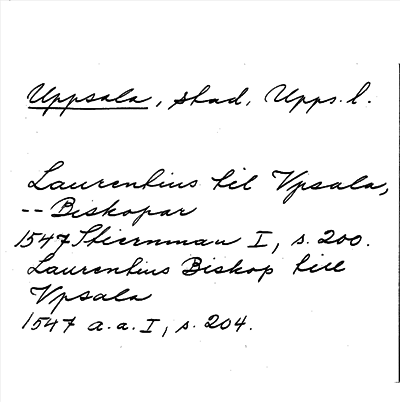 Uppsala, stad, Upps. l.
Laurentius til Vpsala,
-- Biskopar
1547 Stiernman I, s. 200.
Laurentius Biskop till
Vpsala
1547 a.a. I, s. 204.